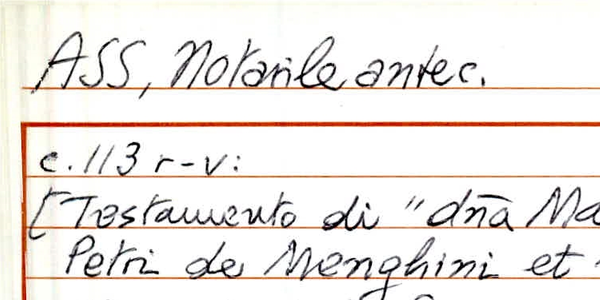 ASS, Notarile antec.
c. 113 r-v:
[Testamento di "dna̅ Ma
Petri de Menghini et